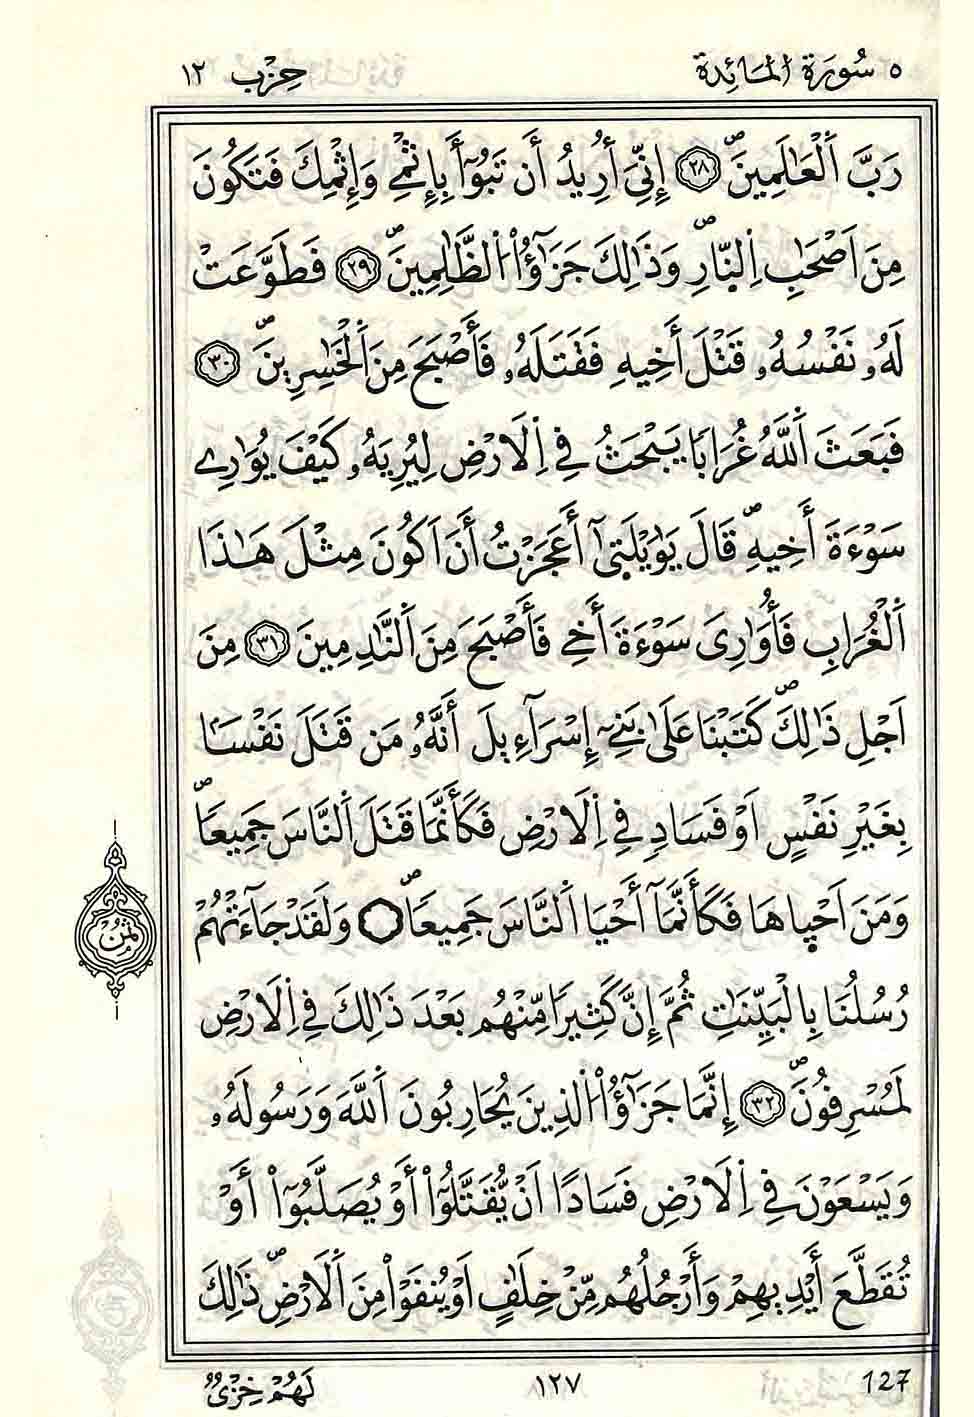 ٥ سُورَةُ الْمَائِدَةِ حِزْب ١٢
رَبَّ اَ۬لْعَٰلَمِينَۖ ٢٨ إِنِّيَ أُرِيدُ أَن تَبُوٓأَ بِإِثْمِے وَإِثْمِكَ فَتَكُونَ
مِنَ اَصْحَٰبِ اِ۬لنّ۪ارِۖ وَذَٰلِكَ جَزَٰٓؤُاْ اُ۬لظَّٰلِمِينَۖ ٢٩ فَطَوَّعَتْ
لَهُۥ نَفْسُهُۥ قَتْلَ أَخِيهِ فَقَتَلَهُۥ فَأَصْبَحَ مِنَ اَ۬لْخَٰسِرِينَۖ ٣٠
فَبَعَثَ اَ۬للَّهُ غُرَاباٗ يَبْحَثُ فِے اِ۬لَارْضِ لِيُرِيَهُۥ كَيْفَ يُوَٰرِے
سَوْءَةَ أَخِيهِۖ قَالَ يَٰوَيْلَت۪ىٰٓ أَعَجَزْتُ أَنَ اَكُونَ مِثْلَ هَٰذَا
اَ۬لْغُرَابِ فَأُوَٰرِيَ سَوْءَةَ أَخِے فَأَصْبَحَ مِنَ اَ۬لنَّٰدِمِينَ ٣١ مِنَ
اَجْلِ ذَٰلِكَۖ كَتَبْنَا عَلَىٰ بَنِےٓ إِسْرَآءِيلَ أَنَّهُۥ مَن قَتَلَ نَفْساَۢ
بِغَيْرِ نَفْسٍ اَوْ فَسَادٖ فِے اِ۬لَارْضِ فَكَأَنَّمَا قَتَلَ اَ۬لنَّاسَ جَمِيعاٗۖ
وَمَنَ اَحْي۪اهَا فَكَأَنَّمَآ أَحْيَا اَ۬لنَّاسَ جَمِيعاٗۖ وَلَقَدْ جَآءَتْهُمْ
رُسُلُنَا بِالْبَيِّنَٰتِ ثُمَّ إِنَّ كَثِيراٗ مِّنْهُم بَعْدَ ذَٰلِكَ فِے اِ۬لَارْضِ
لَمُسْرِفُونَۖ ٣٢ إِنَّمَا جَزَٰٓؤُاْ اُ۬لذِينَ يُحَارِبُونَ اَ۬للَّهَ وَرَسُولَهُۥ
وَيَسْعَوْنَ فِے اِ۬لَارْضِ فَسَاداً اَنْ يُّقَتَّلُوٓاْ أَوْ يُصَلَّبُوٓاْ أَوْ
تُقَطَّعَ أَيْدِيهِمْ وَأَرْجُلُهُم مِّنْ خِلَٰفٍ اَوْ يُنفَوْاْ مِنَ اَ۬لَارْضِۖ ذَٰلِكَ
ثُمُن
لَهُمْ خِزْيٞ ١٢٧ 127